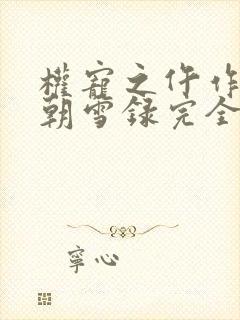 權寵之仵作
朝雪録完全
寧心